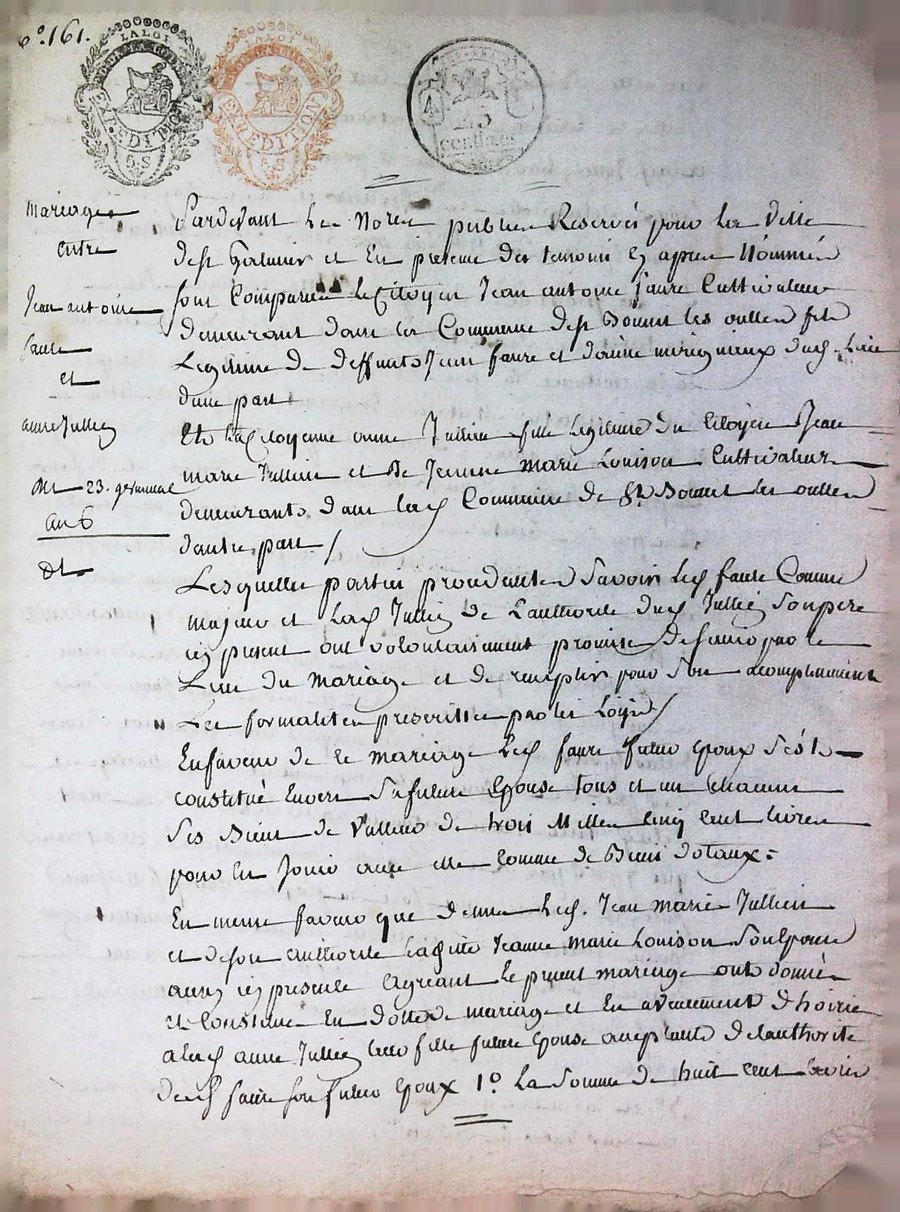 n° 161.
LA LOI
EXPÉDITION
LA LOI
EXPÉDITION
25
centimes
mariage
entre
Jean antoine
faure
et
anne Jullien
du 23. germinal
an 6
Pardevant Les Nores publics Reservés pour La Ville
de st Galmier et En presence des temoins cy apres Nommés
sont Comparus Le Citoyen Jean antoine faure Cultivateur
demeurant dans la Commune de st Bonnet les oulles fils
Legitime de deffunts Jean faure et du
dune part
Et La Citoyenne anne Jullien fille Legitime du Citoyen Jean
marie Jullien et de Jeanne marie Louison Cultivateurs
demeurants dans lad Commune de St Bonnet les oulles
dautre part /
Lesquelles parties procedantes Savoir Led faure Comme
majeur et Lad Jullien de Lauthorité dud Jullien Son pere
icy present ont volontairement promis de sunir par le
Lien du mariage et de remplir pour Son acomplissement
Les formalités prescrittes par les Loix /
En faveur de ce mariage Led faure futur Epoux Sest
constitué Envers Sa future Epouse tous et un chacuns
Ses Biens de Valleur de trois Mille Cinq Cent Livres
pour En Jouir avec elle Comme de Biens dotaux =
En meme faveur que dessus Led. Jean marie Jullien
et de son authorité Laditte Jeanne marie Louison Son Epouse
aussy icy presente Agreant Le present mariage ont donné
et Constitué En dotte de mariage et En avancement d'hoirie
a lad anne Jullien leur fille future Epouse acceptante de lauthorité
dud faure son futur Epoux 1° La Somme de huit cent Livres